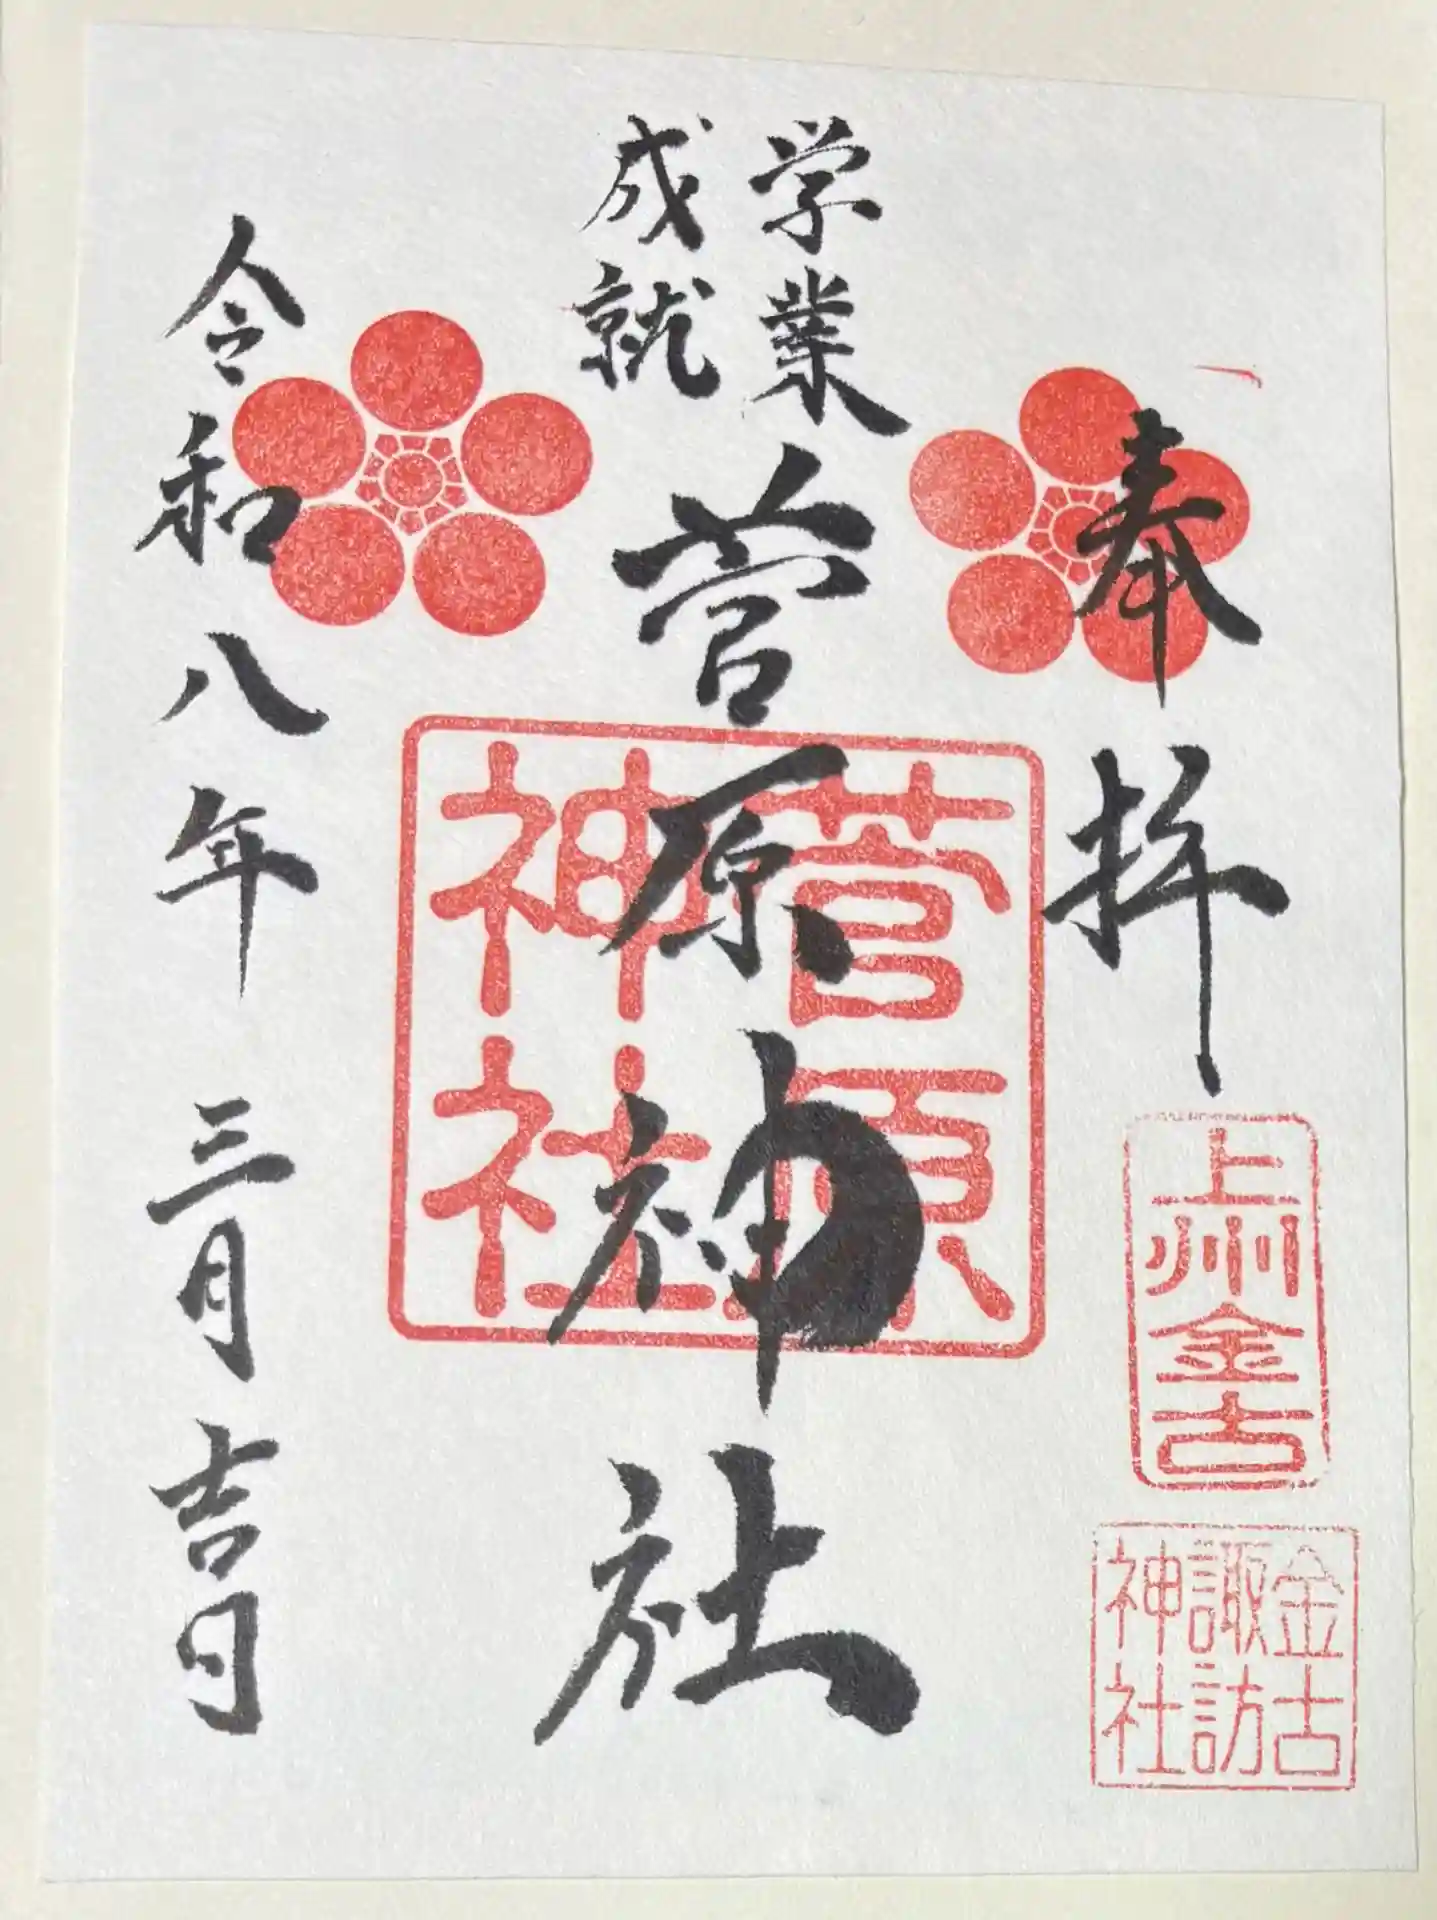 奉拝
上州金古
金古
諏訪
神社
学業
成就
菅原神社
菅原
神社
令和八年三月吉日